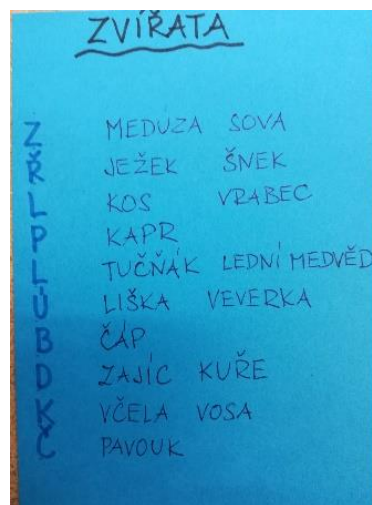 ZVÍŘATA
Z MEDUZA SOVA
Ř JEŽEK ŠNEK
L KOS VRABEC
P KAPR
L TUČŇÁK LEDNÍ MEDVĚD
Ú LIŠKA VEVERKA
B ČÁP
D ZAJÍC KUŘE
K VČELA VOSA
Č PAVOUK